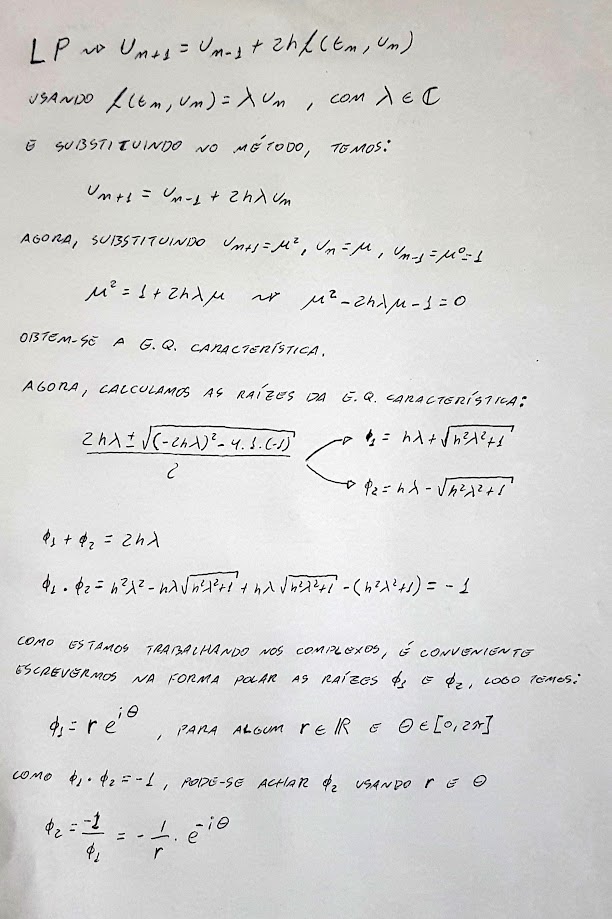 LP ⇝ Un+1 = Un-1 + 2hf(tn, Un)
USANDO f(tn, Un) = λUn , COM λ ∈ ℂ
E SUBSTITUINDO NO MÉTODO, TEMOS:
Un+1 = Un-1 + 2hλUn
AGORA, SUBSTITUINDO Un+1 = μ², Un = μ, Un-1 = μ⁰ = 1
μ² = 1 + 2hλμ ⇝ μ² - 2hλμ - 1 = 0
OBTEM-SE A E.Q. CARACTERÍSTICA.
AGORA, CALCULAMOS AS RAÍZES DA E.Q. CARACTERÍSTICA:
2hλ ± √((-2hλ)² - 4.1.(-1)) / 2
ϕ1 = hλ + √(h²λ²+1)
ϕ2 = hλ - √(h²λ²+1)
ϕ1 + ϕ2 = 2hλ
ϕ1 . ϕ2 = h²λ² - hλ√(h²λ²+1) + hλ√(h²λ²+1) - (h²λ²+1) = -1
COMO ESTAMOS TRABALHANDO NOS COMPLEXOS, É CONVENIENTE
ESCREVERMOS NA FORMA POLAR AS RAÍZES ϕ1 E ϕ2, LOGO TEMOS:
ϕ1 = r e^{iθ} , PARA ALGUM r ∈ ℝ E θ ∈ [0, 2π]
COMO ϕ1 . ϕ2 = -1, PODE-SE ACHAR ϕ2 USANDO r E θ
ϕ2 = -1/ϕ1 = - 1/r . e^{-iθ}